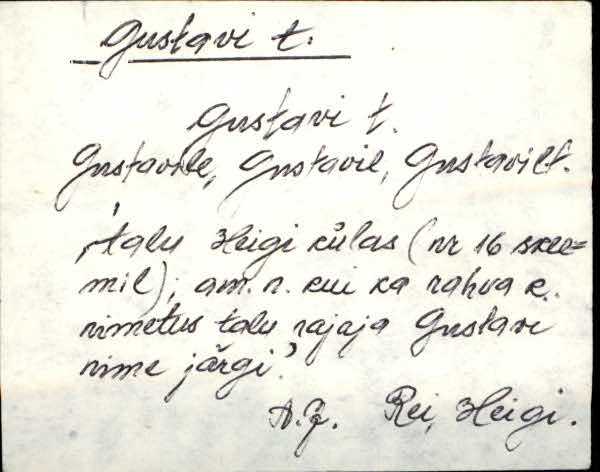 Gustavi t.
Gustavi t.
Gustavile, Gustavil, Gustavilt.
'talu Heigi külas (nr 16 skee=
mil); am. n. kui ka rahva k.
nimetus talu rajaja Gustavi
nime järgi.'
A. J. Rei, Heigi.